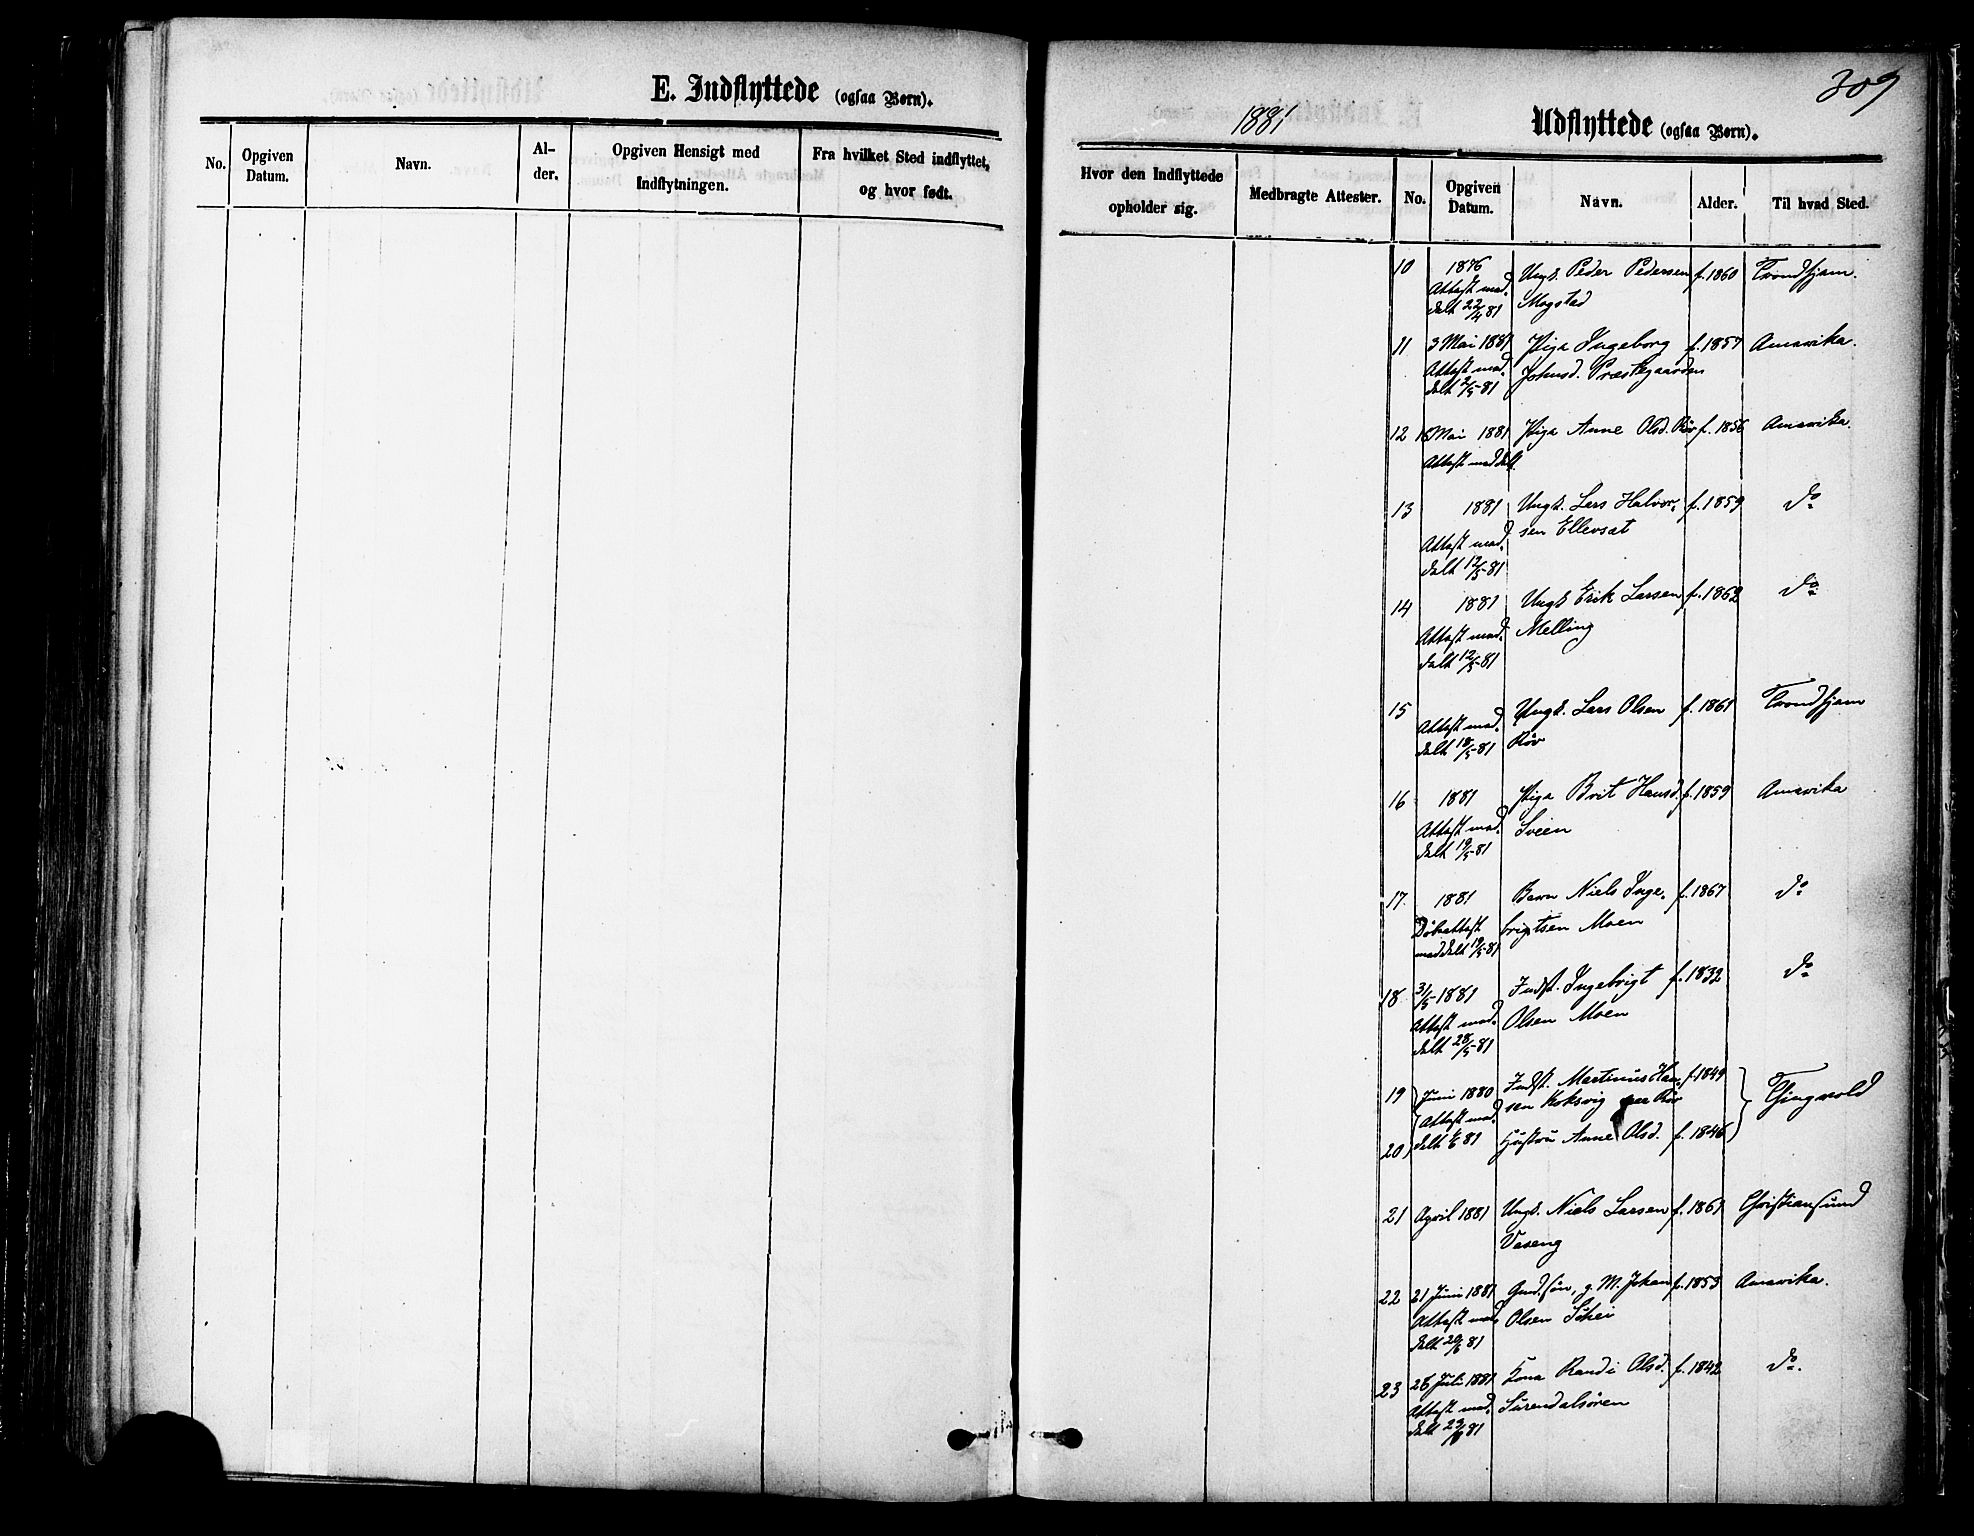 E. Indflyttede (ogsaa Børn).
No.
Opgiven Datum.
Navn.
Al-
der.
Opgiven Hensigt med
Indflytningen.
Fra hvilket Sted indflyttet,
og hvor født.
309
1881
Udflyttede (ogsaa Børn).
Hvor den Indflyttede
opholder sig.
Medbragte Attester.
No.
Opgiven Datum.
Navn.
Alder.
Til hvad Sted.
10 1876 Ungk. Peder Pedersen f. 1860 Trondhjem.
Attest med- Mogstad
delt 22/4 81
11 3 Mai 1881 Pige Ingeborg f. 1857 Amerika.
Attest med- Johnsd. Præstegaarden
delt 2/5-81
12 18 Mai 1881 Pige Anne Olsd. Røv f. 1856 Amerika.
Attest meddelt
13 1881 Ungk. Lars Halvor- f. 1859 do
Attest med- sen Ellevset
delt 12/5-81
14 1881 Ungk Erik Larsen f. 1862 do
Attest med- Melling
delt 12/5-81
15 Ungk. Lars Olsen f. 1861 Trondhjem
Attest med- Røv
delt 18/5-81
16 1881 Pige Brit Hansd. f. 1859 Amerika
Attest med- Sveen
delt 19/5-81
17. 1881 Barn Niels Inge- f. 1867 do
Døbeattest brigtsen Moen
meddelt 19/5-81
18 31/5-1881 Indst. Ingebrigt f. 1832 do
Attest med- Olsen Moen
delt 28/5-81
19 Juni 1880 Indst. Martinus Han- f. 1849 Thingvold
Attest med- sen Koksvig Røv
20 delt 81 Hustru Anne Olsd. f. 1846
21 April 1881 Ungk. Niels Larsen f. 1861 Christiansund
Vaseng
22 21 Juni 1881 Gmd.søn, g. M. Johan f. 1853 Amerika.
Attest med- Olsen Schei
delt 20/6 81
23 28 Juli 1881 Kone Randi Olsd. f. 1842 do.
Attest med- Surendalsøren
delt 81